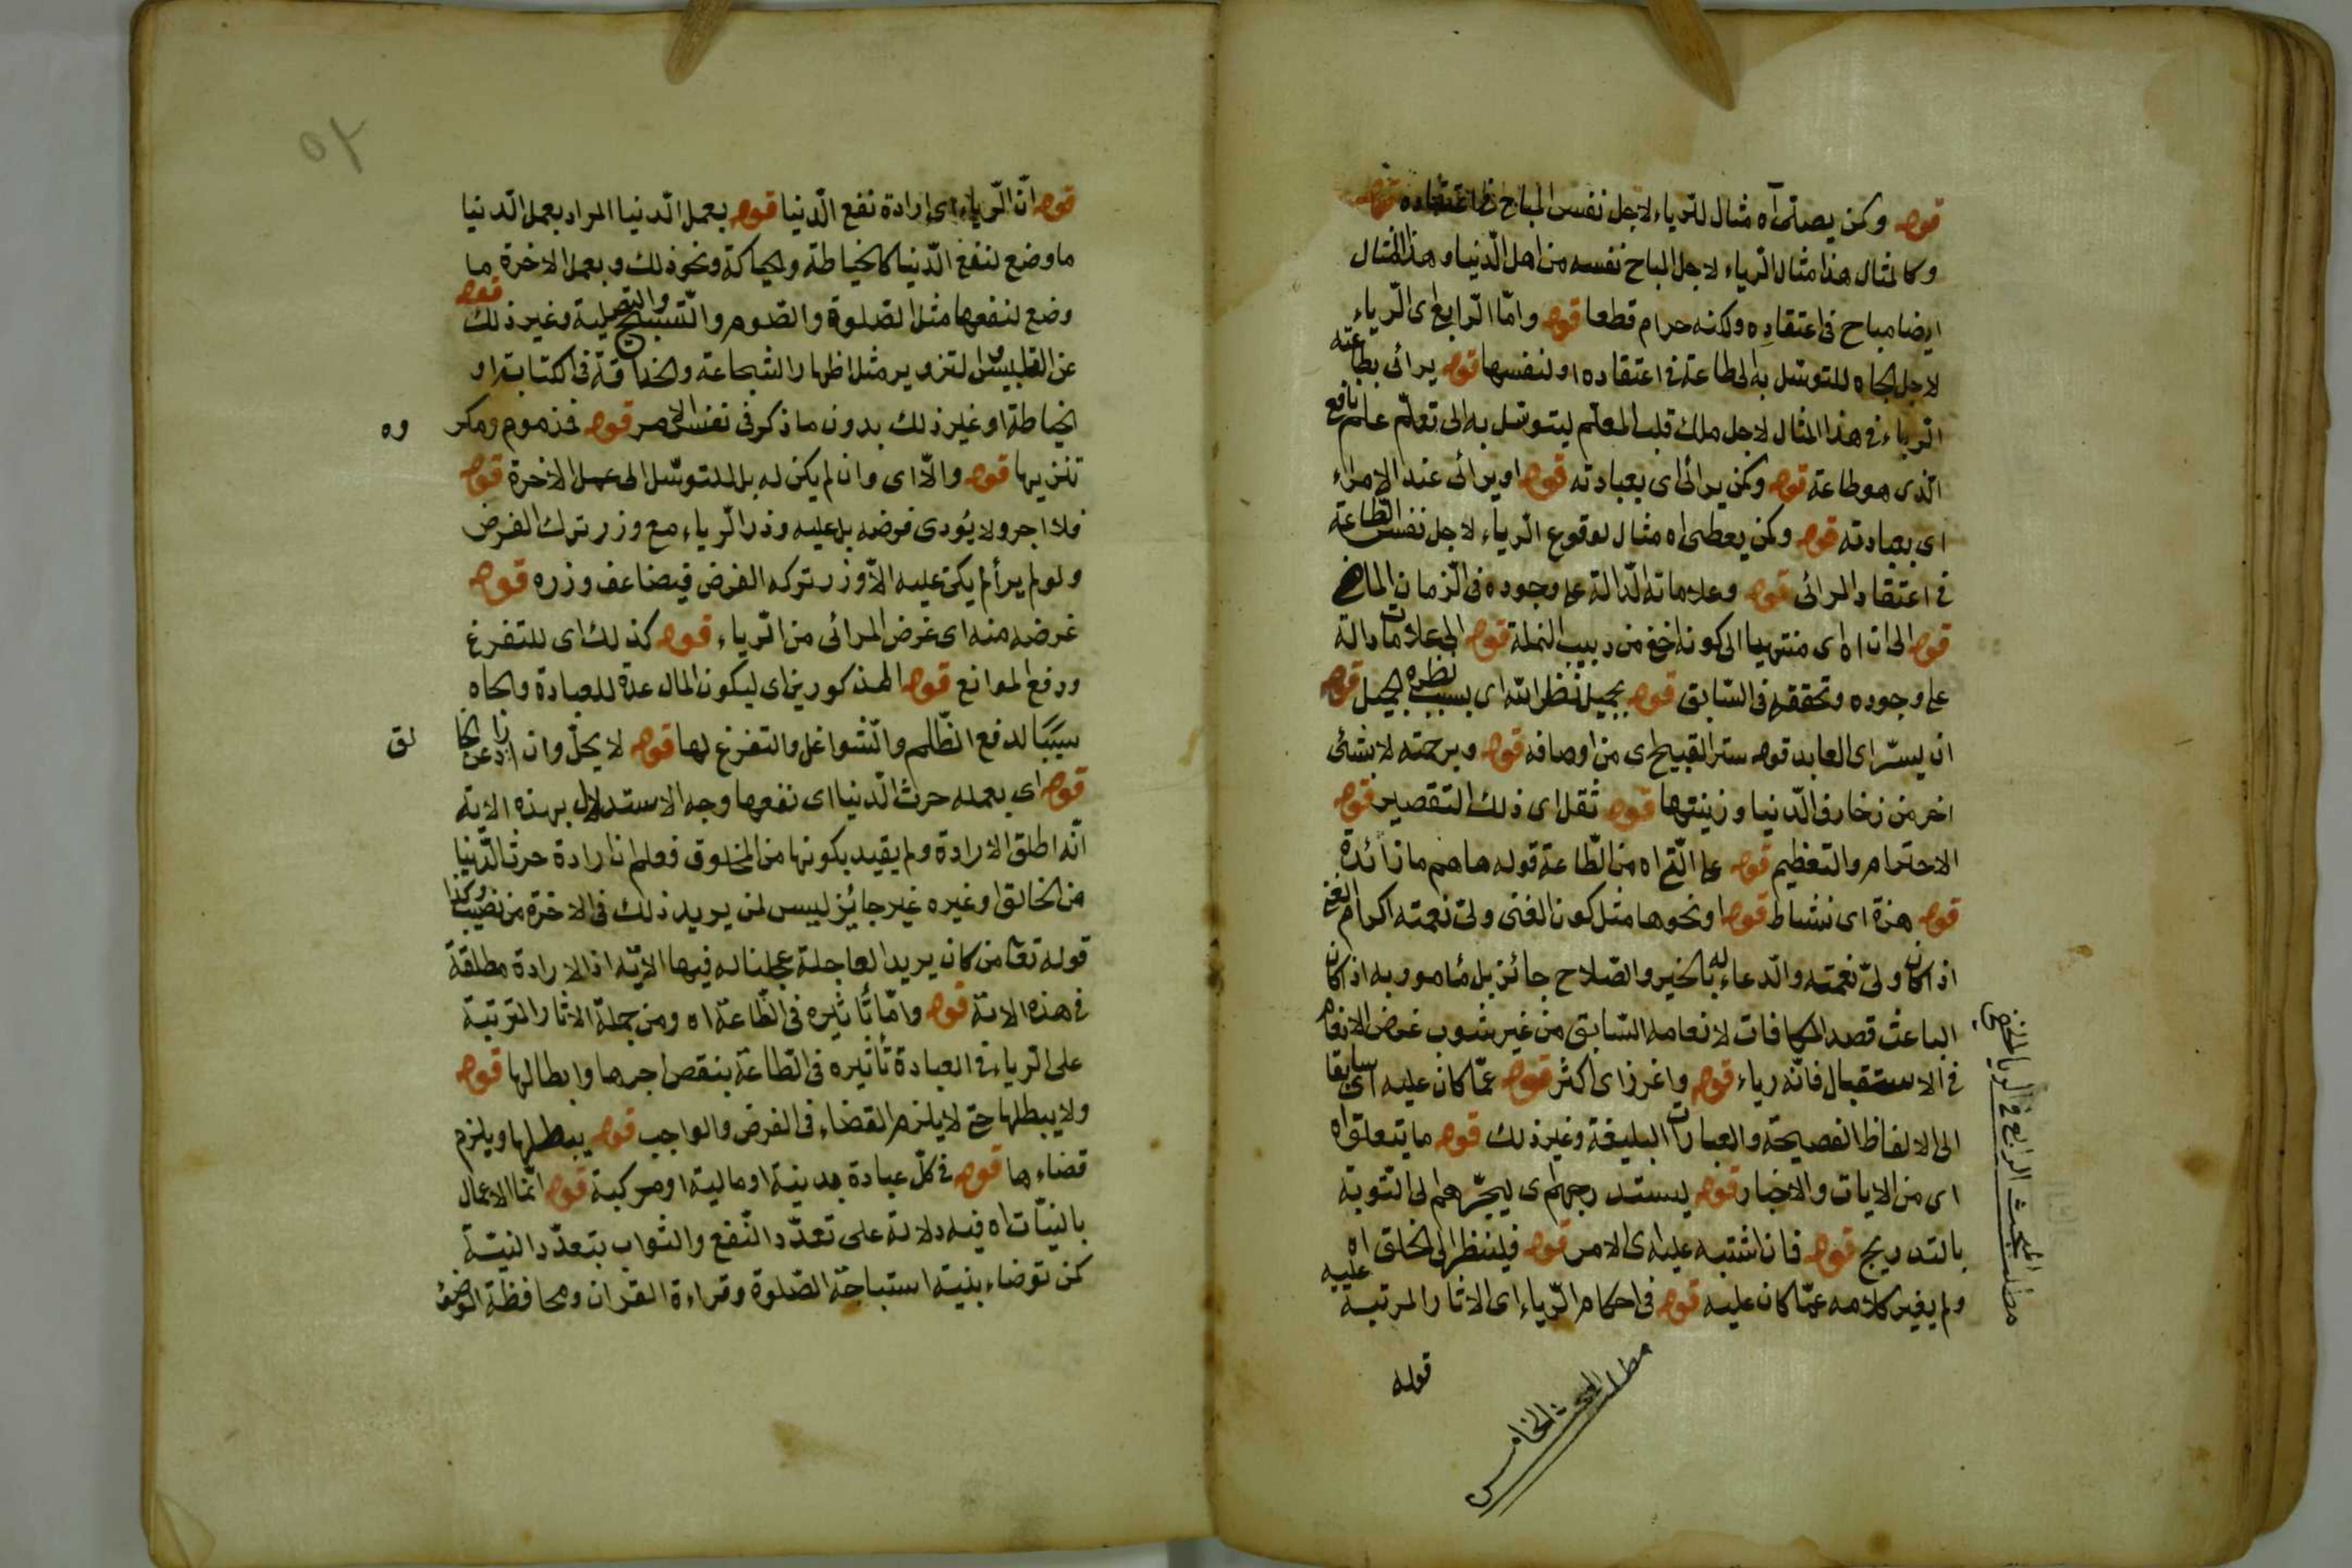 قوله وكمن يصلى آه مثال للرياء لاجل نفس المباح فى اعتقاده قوله
وكالمثال هذا مثال الرياء لاجل المباح نفسه من اهل الدنيا وهذا المثال
ايضا مباح فى اعتقاده ولكنه حرام قطعا قوله وامّا الرابع اى الرياء
لاجل الجاه للتوسّل به الى طاعة فى اعتقاده او لنفسها قوله يرائى بطاعته
الرياء فى هذا المثال لاجل ملك قلب المعلّم ليتوسّل به الى تعلّم علم نافع
الّذى هو طاعة قوله وكمن يرائى اى بعبادته قوله او يرائى عند الامراء
اى بعبادته قوله وكمن يعطى اه مثال لوقوع الرياء لاجل نفس الطاعة
فى اعتقاد المرائى قوله وعلاماته الدّالة على وجوده فى الزمان الماضى
قوله الى ان اه اى منتهيا الى كونه اخفى من دبيب النملة قوله الى علامات دالة
على وجوده وتحققه فى السّابق قوله بجميل نظر الله اى بسبب نظره الجميل قوله
ان يسرّ اى العابد قوله ستر القبيح اى من اوصافه قوله وبرحمته لا شئ
اخر من زخارف الدّنيا وزينتها قوله ثقل اى ذلك التقصير قوله
الاحترام والتعظيم قوله على الّتى اه من الطّاعة قوله هاهم ما زائدة
قوله هزة اى نشاط قوله او نحوها مثل كون الغنى ولىّ نعمته اكرام الغنى
اذ اكان ولىّ نعمته والدعاء له بالخير والصّلاح جائز بل مأمور به اذ اكان
الباعث قصد المكافات لانعامه السّابق من غير شوب غرض الانعام
فى الاستقبال فانّه رياء قوله واغرز اى اكثر قوله عمّا كان عليه اى سابقا
الى الالفاظ الفصيحة والعبارات البليغة وغير ذلك قوله ما يتعلق اه
اى من الايات والاخبار قوله ليستدرجهم اى ليجرّهم الى التّوبة
بالتدريج قوله فان اشتبه عليه اى الامر قوله فلينظر الى الخلق اه
ولم يغير كلامه عمّا كان عليه قوله فى احكام الرّياء اى الاثار المرتبة عليه
قوله
مطلب المبحث الرابع فى الريا الخفى
مطلب المبحث الخامس
قوله انّ الرياء اى ارادة نفع الدّنيا قوله بعمل الدّنيا المراد بعمل الدّنيا
ما وضع لنفع الدّنيا كالخياطة والحياكة ونحو ذلك وبعمل الاخرة ما
وضع لنفعها مثل الصّلوة والصّوم والتّسبيح والتّهليل وغير ذلك قوله
عن التلبيس والتزوير مثل اظهار الشجاعة والحذاقة فى الكتابة او
الخياطة او غير ذلك بدون ما ذكر فى نفس الامر قوله فمذموم ومكروه
تنزيها قوله والّا اى وان لم يكن له بل للتوسّل الى عمل الاخرة قوله
فلا اجر ولا يؤدى فرضه بل عليه وزر الرّياء مع وزر ترك الفرض
ولو لم يرأ لم يكن عليه الّا وزر تركه الفرض فيضاعف وزره قوله
غرضه منه اى غرض المرائى من الرّياء قوله كذلك اى للتفرغ
ودفع الموانع قوله المذكورين اى ليكون المال عدة للعبادة والجاه
سببا لدفع الظّلم والشّواغل والتفرغ لها قوله لا يحلّ وان اراد عن الخالق
قوله اى بعمله حرث الدّنيا اى نفعها وجه الاستدلال بهذه الاية
انّه اطلق الارادة ولم يقيد بكونها من المخلوق فعلم ان ارادة حرث الدّنيا
من الخالق او غيره غير جائز ليس لمن يريد ذلك فى الاخرة من نصيب وكذا
قوله تعالى من كان يريد العاجلة عجلنا له فيها الاية اذ الارادة مطلقة
فى هذه الاية قوله وامّا تأثيره فى الطّاعة اه ومن جملة الاثار المترتبة
على الرّياء فى العبادة تأثيره فى الطّاعة بنقص اجرها وابطالها قوله
ولا يبطلها حتى لا يلزم القضاء فى الفرض والواجب قوله يبطلها ويلزم
قضاءها قوله فى كلّ عبادة بدينية او مالية او مركبة قوله انّما الاعمال
بالنيّات اه فيه دلالة على تعدّد النّفع والثواب بتعدّد النيّة
كمن توضاء بنية استباحة الصّلوة وقراءة القران ومحافظة الوضوء